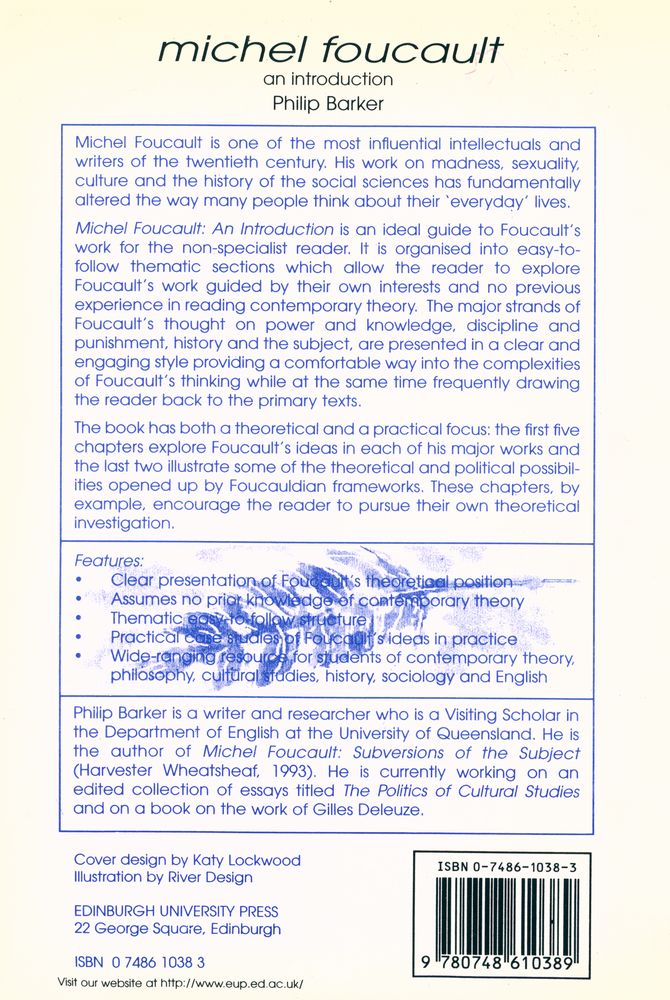 michel foucault
an introduction
Philip Barker
Michel Foucault is one of the most influential intellectuals and
writers of the twentieth century. His work on madness, sexuality,
culture and the history of the social sciences has fundamentally
altered the way many people think about their ‘everyday’ lives.
Michel Foucault: An Introduction is an ideal guide to Foucault's
work for the non-specialist reader. It is organised into easy-to-
follow thematic sections which allow the reader to explore
Foucault's work guided by their own interests and no previous
experience in reading contemporary theory. The major strands of
Foucault's thought on power and knowledge, discipline and
punishment, history and the subject, are presented in a clear and
engaging style providing a comfortable way into the complexities
of Foucault's thinking while at the same time frequently drawing
the reader back to the primary texts.
The book has both a theoretical and a practical focus: the first five
chapters explore Foucault's ideas in each of his major works and
the last two illustrate some of the theoretical and political possibil-
ities opened up by Foucauldian frameworks. These chapters, by
example, encourage the reader to pursue their own theoretical
investigation.
Features:
• Clear presentation of Foucault's theoretical position
• Assumes no prior knowledge of contemporary theory
• Thematic easy-to-follow structure
• Practical case studies of Foucault's ideas in practice
• Wide-ranging resource for students of contemporary theory,
philosophy, cultural studies, history, sociology and English
Philip Barker is a writer and researcher who is a Visiting Scholar in
the Department of English at the University of Queensland. He is
the author of Michel Foucault: Subversions of the Subject
(Harvester Wheatsheaf, 1993). He is currently working on an
edited collection of essays titled The Politics of Cultural Studies
and on a book on the work of Gilles Deleuze.
Cover design by Katy Lockwood
Illustration by River Design
EDINBURGH UNIVERSITY PRESS
22 George Square, Edinburgh
ISBN 0 7486 1038 3
Visit our website at http://www.eup.ed.ac.uk/
ISBN 0-7486-1038-3
9 780748 610389